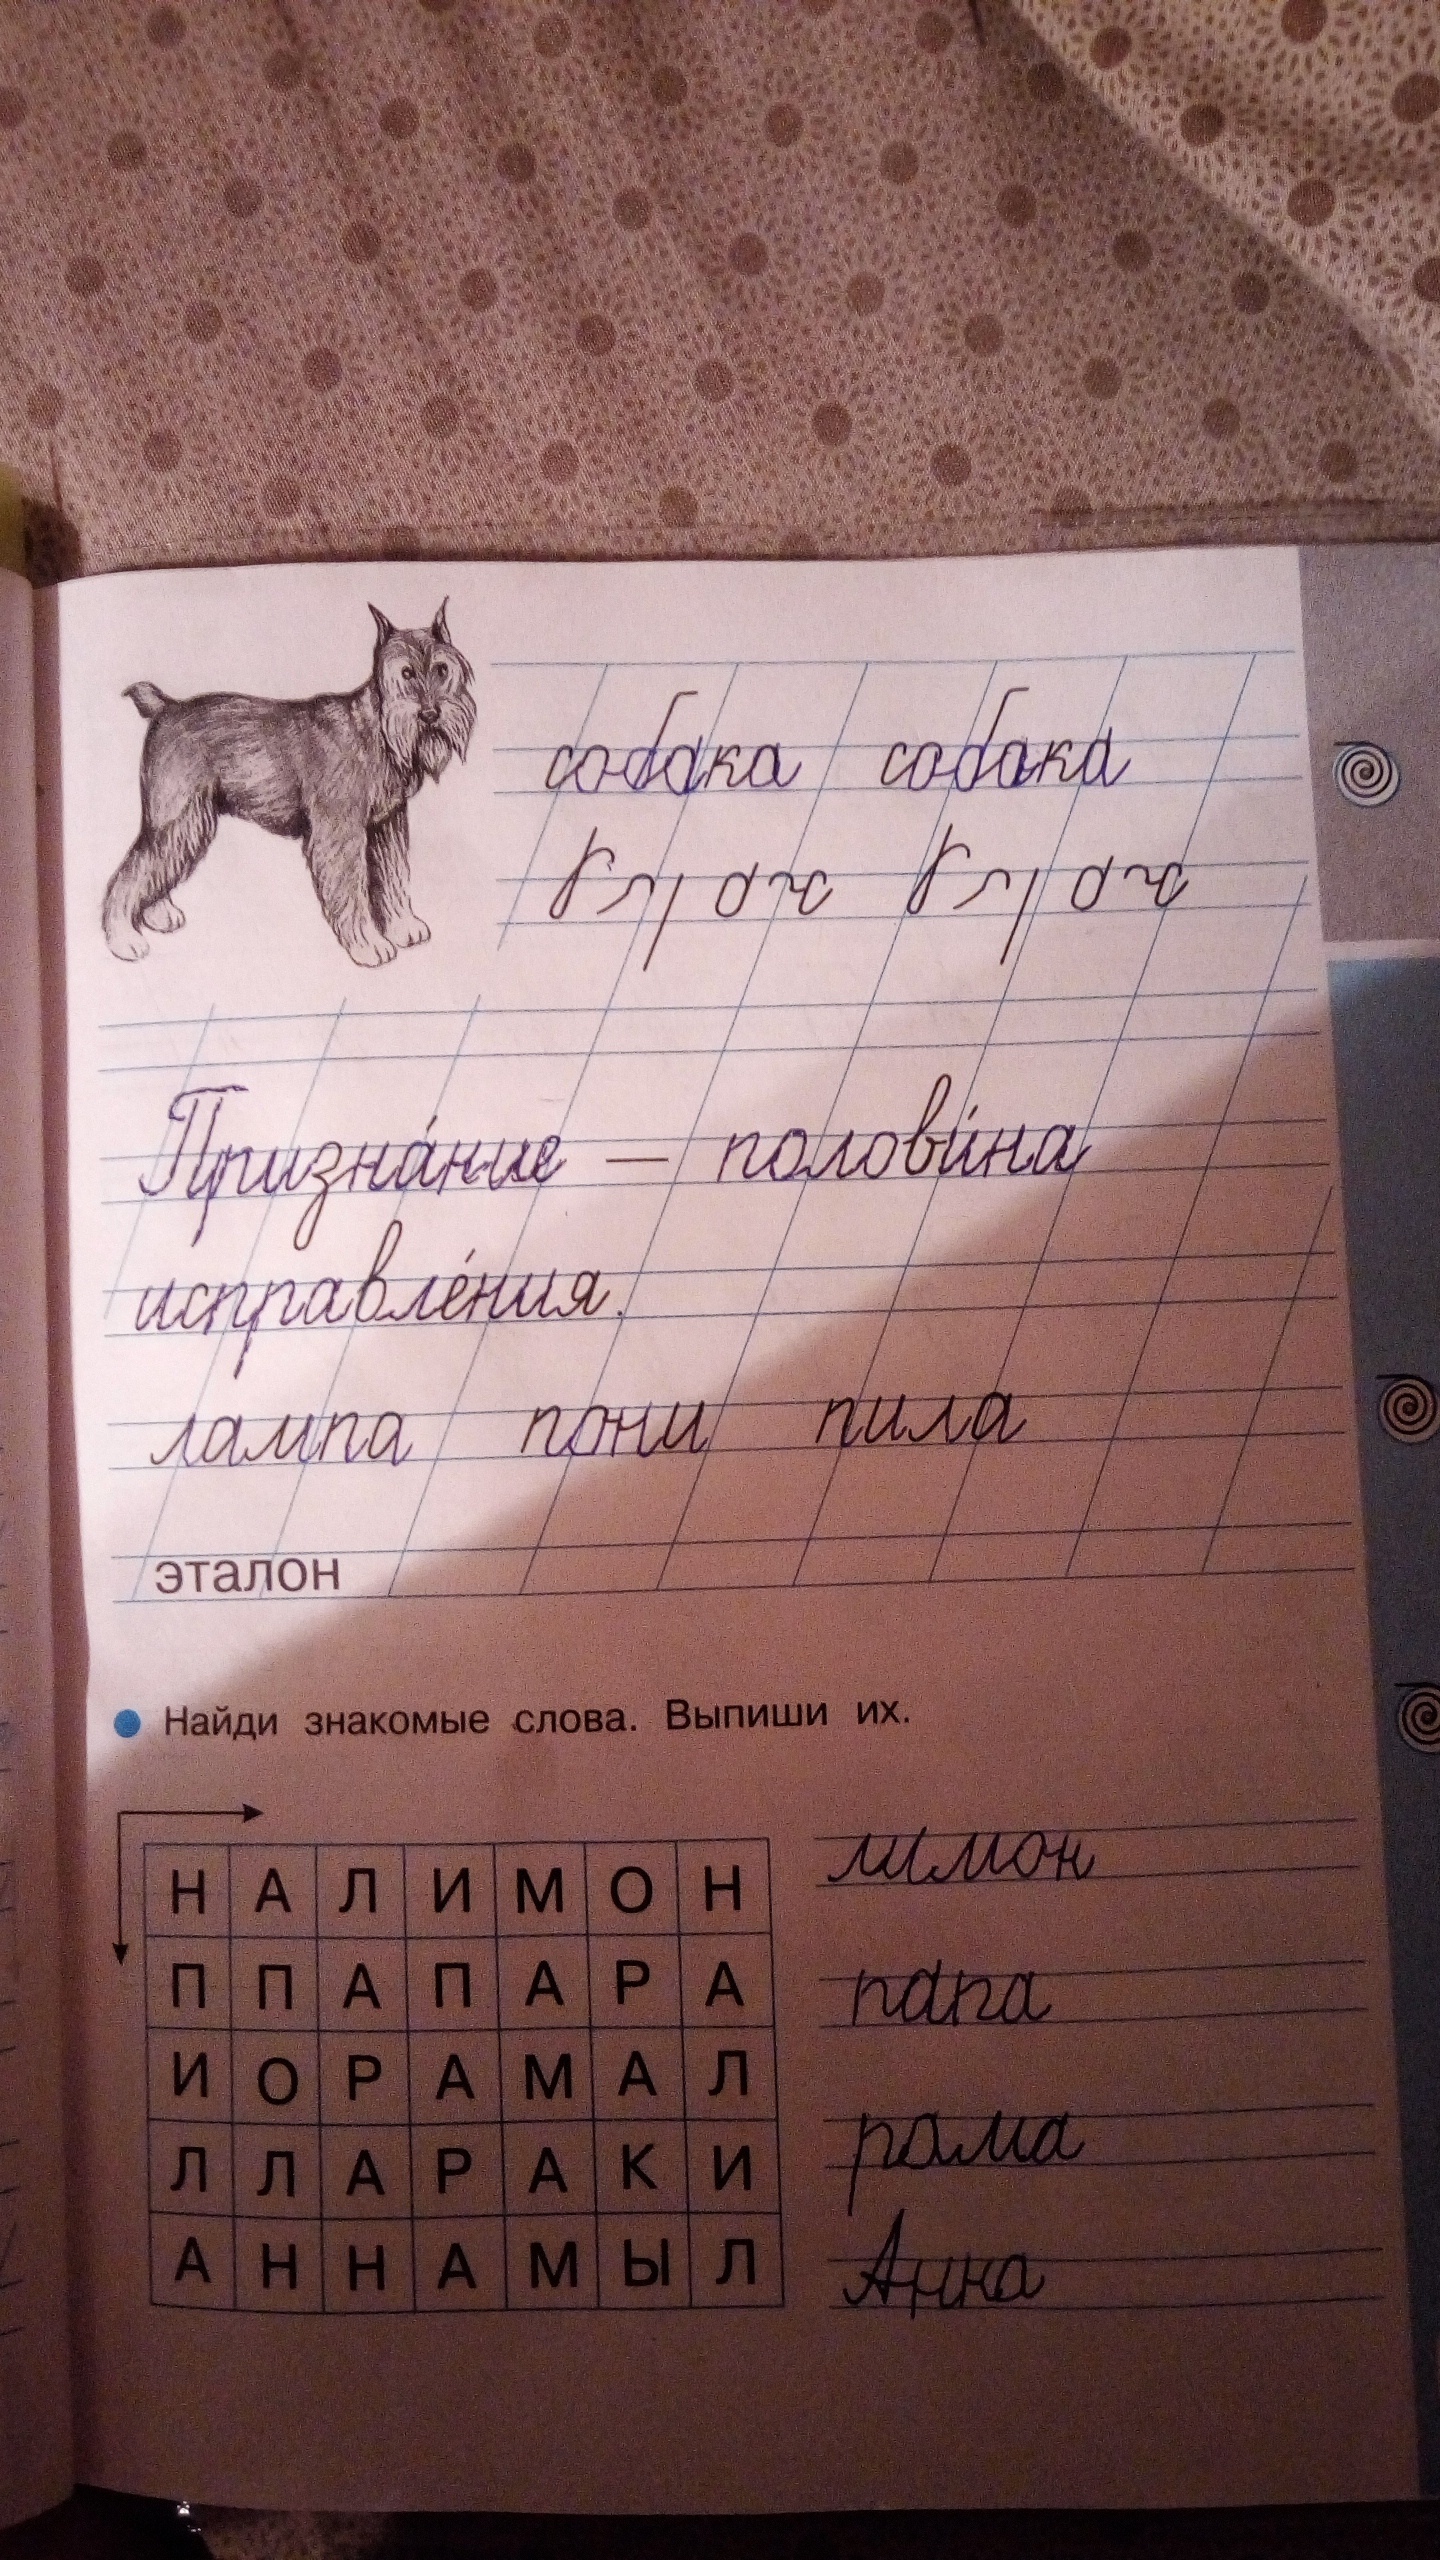 собака собака
Призна́ние — полови́на
исправле́ния.
лампа пони пила
эталон
Найди знакомые слова. Выпиши их.
Н А Л И М О Н
П П А П А Р А
И О Р А М А Л
Л Л А Р А К И
А Н Н А М Ы Л
лимон
папа
рама
Анна